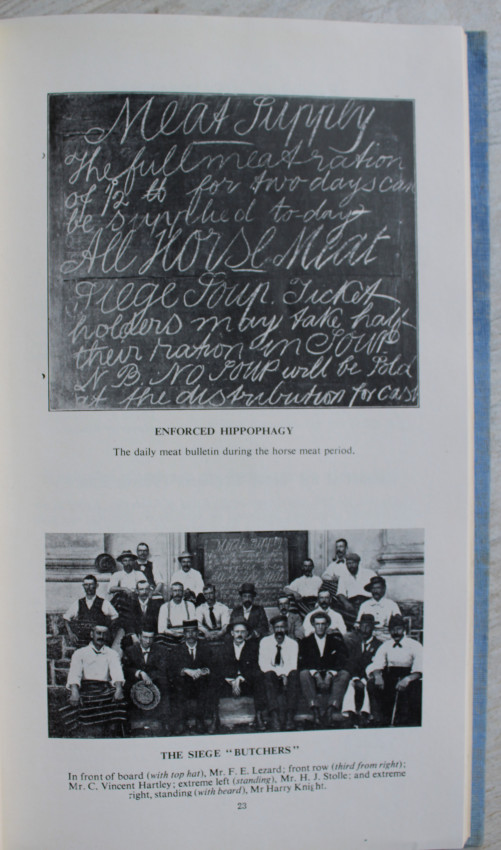 Meat Supply
The full meat ration
of ½ lb for two days can
be supplied to-day
All Horse Meat
Siege Soup. Ticket
holders may take half
their ration in SOUP
N.B. NO SOUP will be Sold
at the distribution for cash
ENFORCED HIPPOPHAGY
The daily meat bulletin during the horse meat period.
Meat Supply
THE SIEGE "BUTCHERS"
In front of board (with top hat), Mr. F. E. Lezard; front row (third from right);
Mr. C. Vincent Hartley; extreme left (standing), Mr. H. J. Stolle; and extreme
right, standing (with beard), Mr Harry Knight.
23